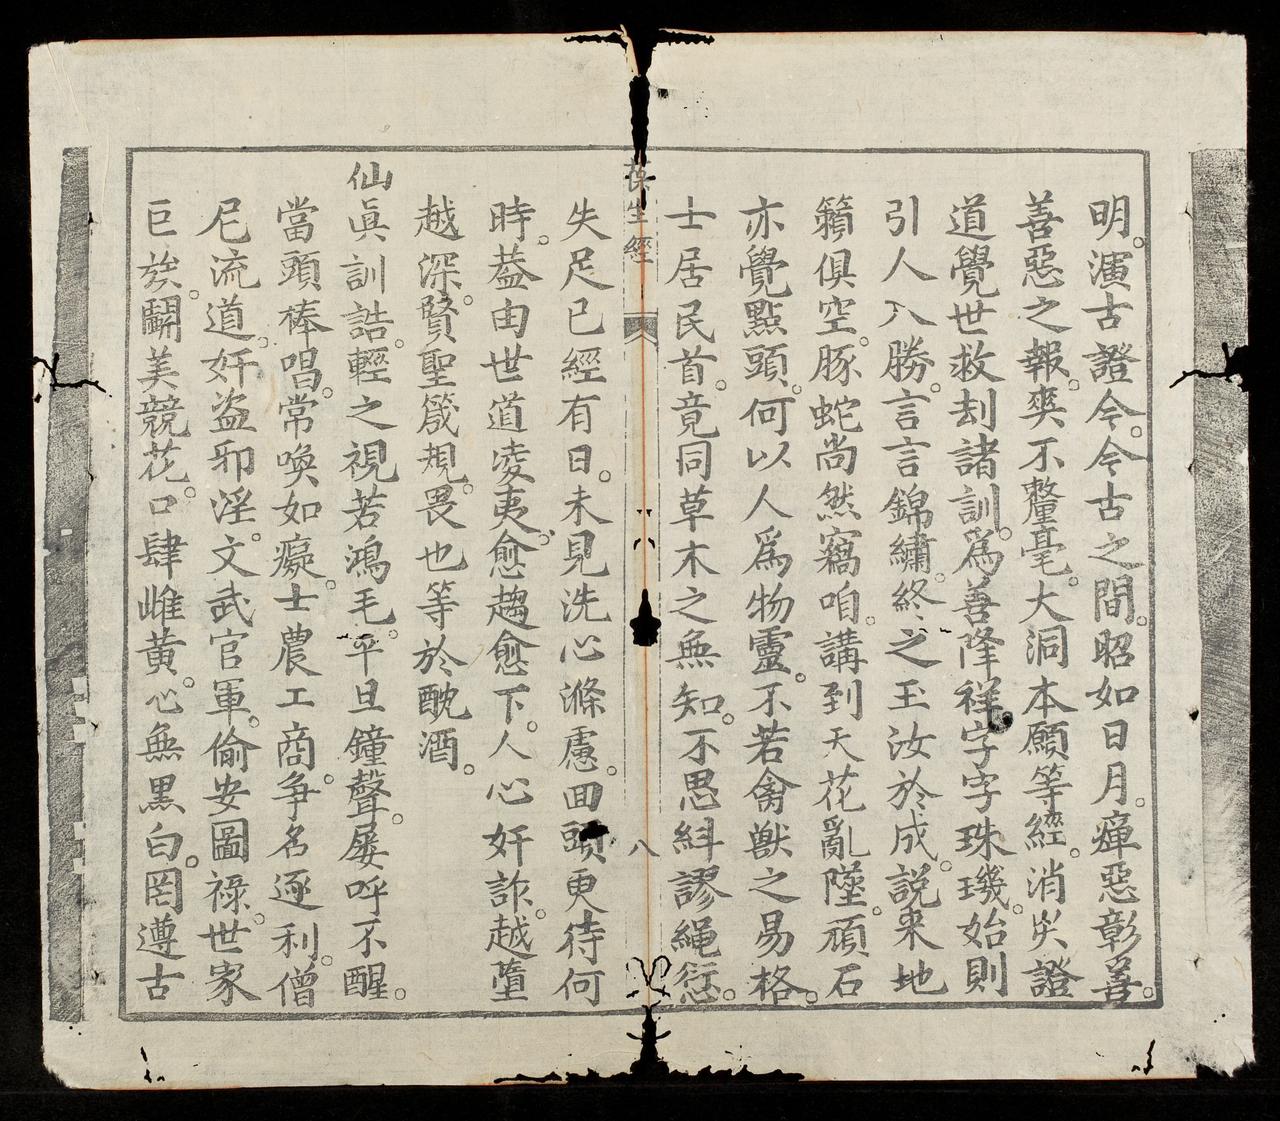 明。演古證今。今古之間。昭如日月。癉惡彰善。
善惡之報。爽不釐毫。大洞本願等經。消災證
道。覺世救刦諸訓。爲善降祥。字字珠璣。始則
引人入勝。言言錦繡。終之玉汝於成。說來地
籟俱空。豚蛇尚然竊咱。講到天花亂墜。頑石
亦覺點頭。何以人爲物靈。不若禽獸之易格。
士居民首。竟同草木之無知。不思糾謬繩愆。
保生經
八
失足已經有日。未見洗心滌慮。回頭更待何
時。葢由世道凌夷。愈趨愈下。人心奸詐。越墮
越深。賢聖箴規。畏也等於酖酒。
仙眞訓誥。輕之視若鴻毛。平旦鐘聲。屢呼不醒。
當頭棒喝。常喚如癡。士農工商。争名逐利。僧
尼流道。奸盗邪淫。文武官軍。偷安圖祿。世家
巨族。鬭美競花。口肆雌黄。心無黒白。罔遵古